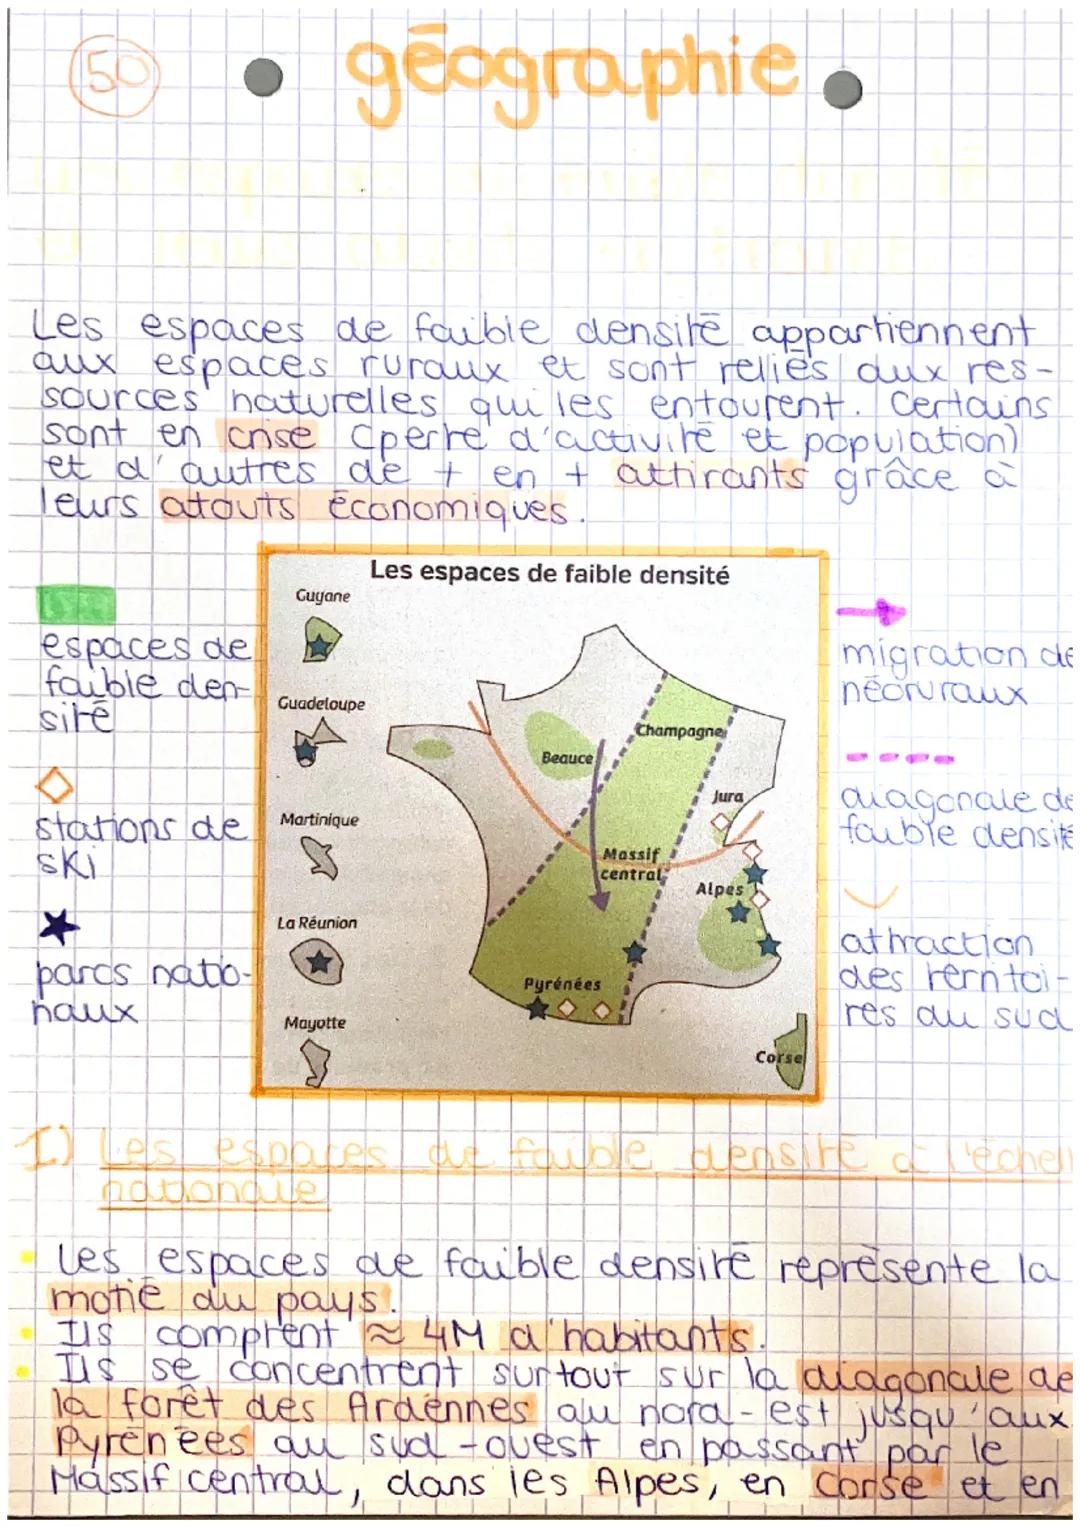 50
géographie
Les espaces de faible densité appartiennent
aux espaces ruraux et sont reliés aux res-
sources naturelles qui les entourent. Certains
sont en crise (perte d'activité et population)
et d'autres de + en + attirants grâce à
leurs atouts économiques.
Les espaces de faible densité
Guyane
Guadeloupe
Martinique
La Réunion
Mayotte
Champagne
Beauce
Jura
Massif
central
Alpes
Pyrénées
Corse
espaces de
faible den-
sité
stations de
ski
parcs natio-
naux
migration de
néoruraux
diagonale de
faible densité
attraction
des territoi-
res du sud
I) Les espaces de faible densité à l'échell
nationale
Les espaces de faible densité représente la
motié du pays.
Ils comptent ≈ 4M d'habitants.
Ils se concentrent surtout sur la diagonale de
la forêt des Ardennes au nord-est jusqu'aux
Pyrénées au sud-ouest en passant par le
Massif central, dans les Alpes, en Corse et en